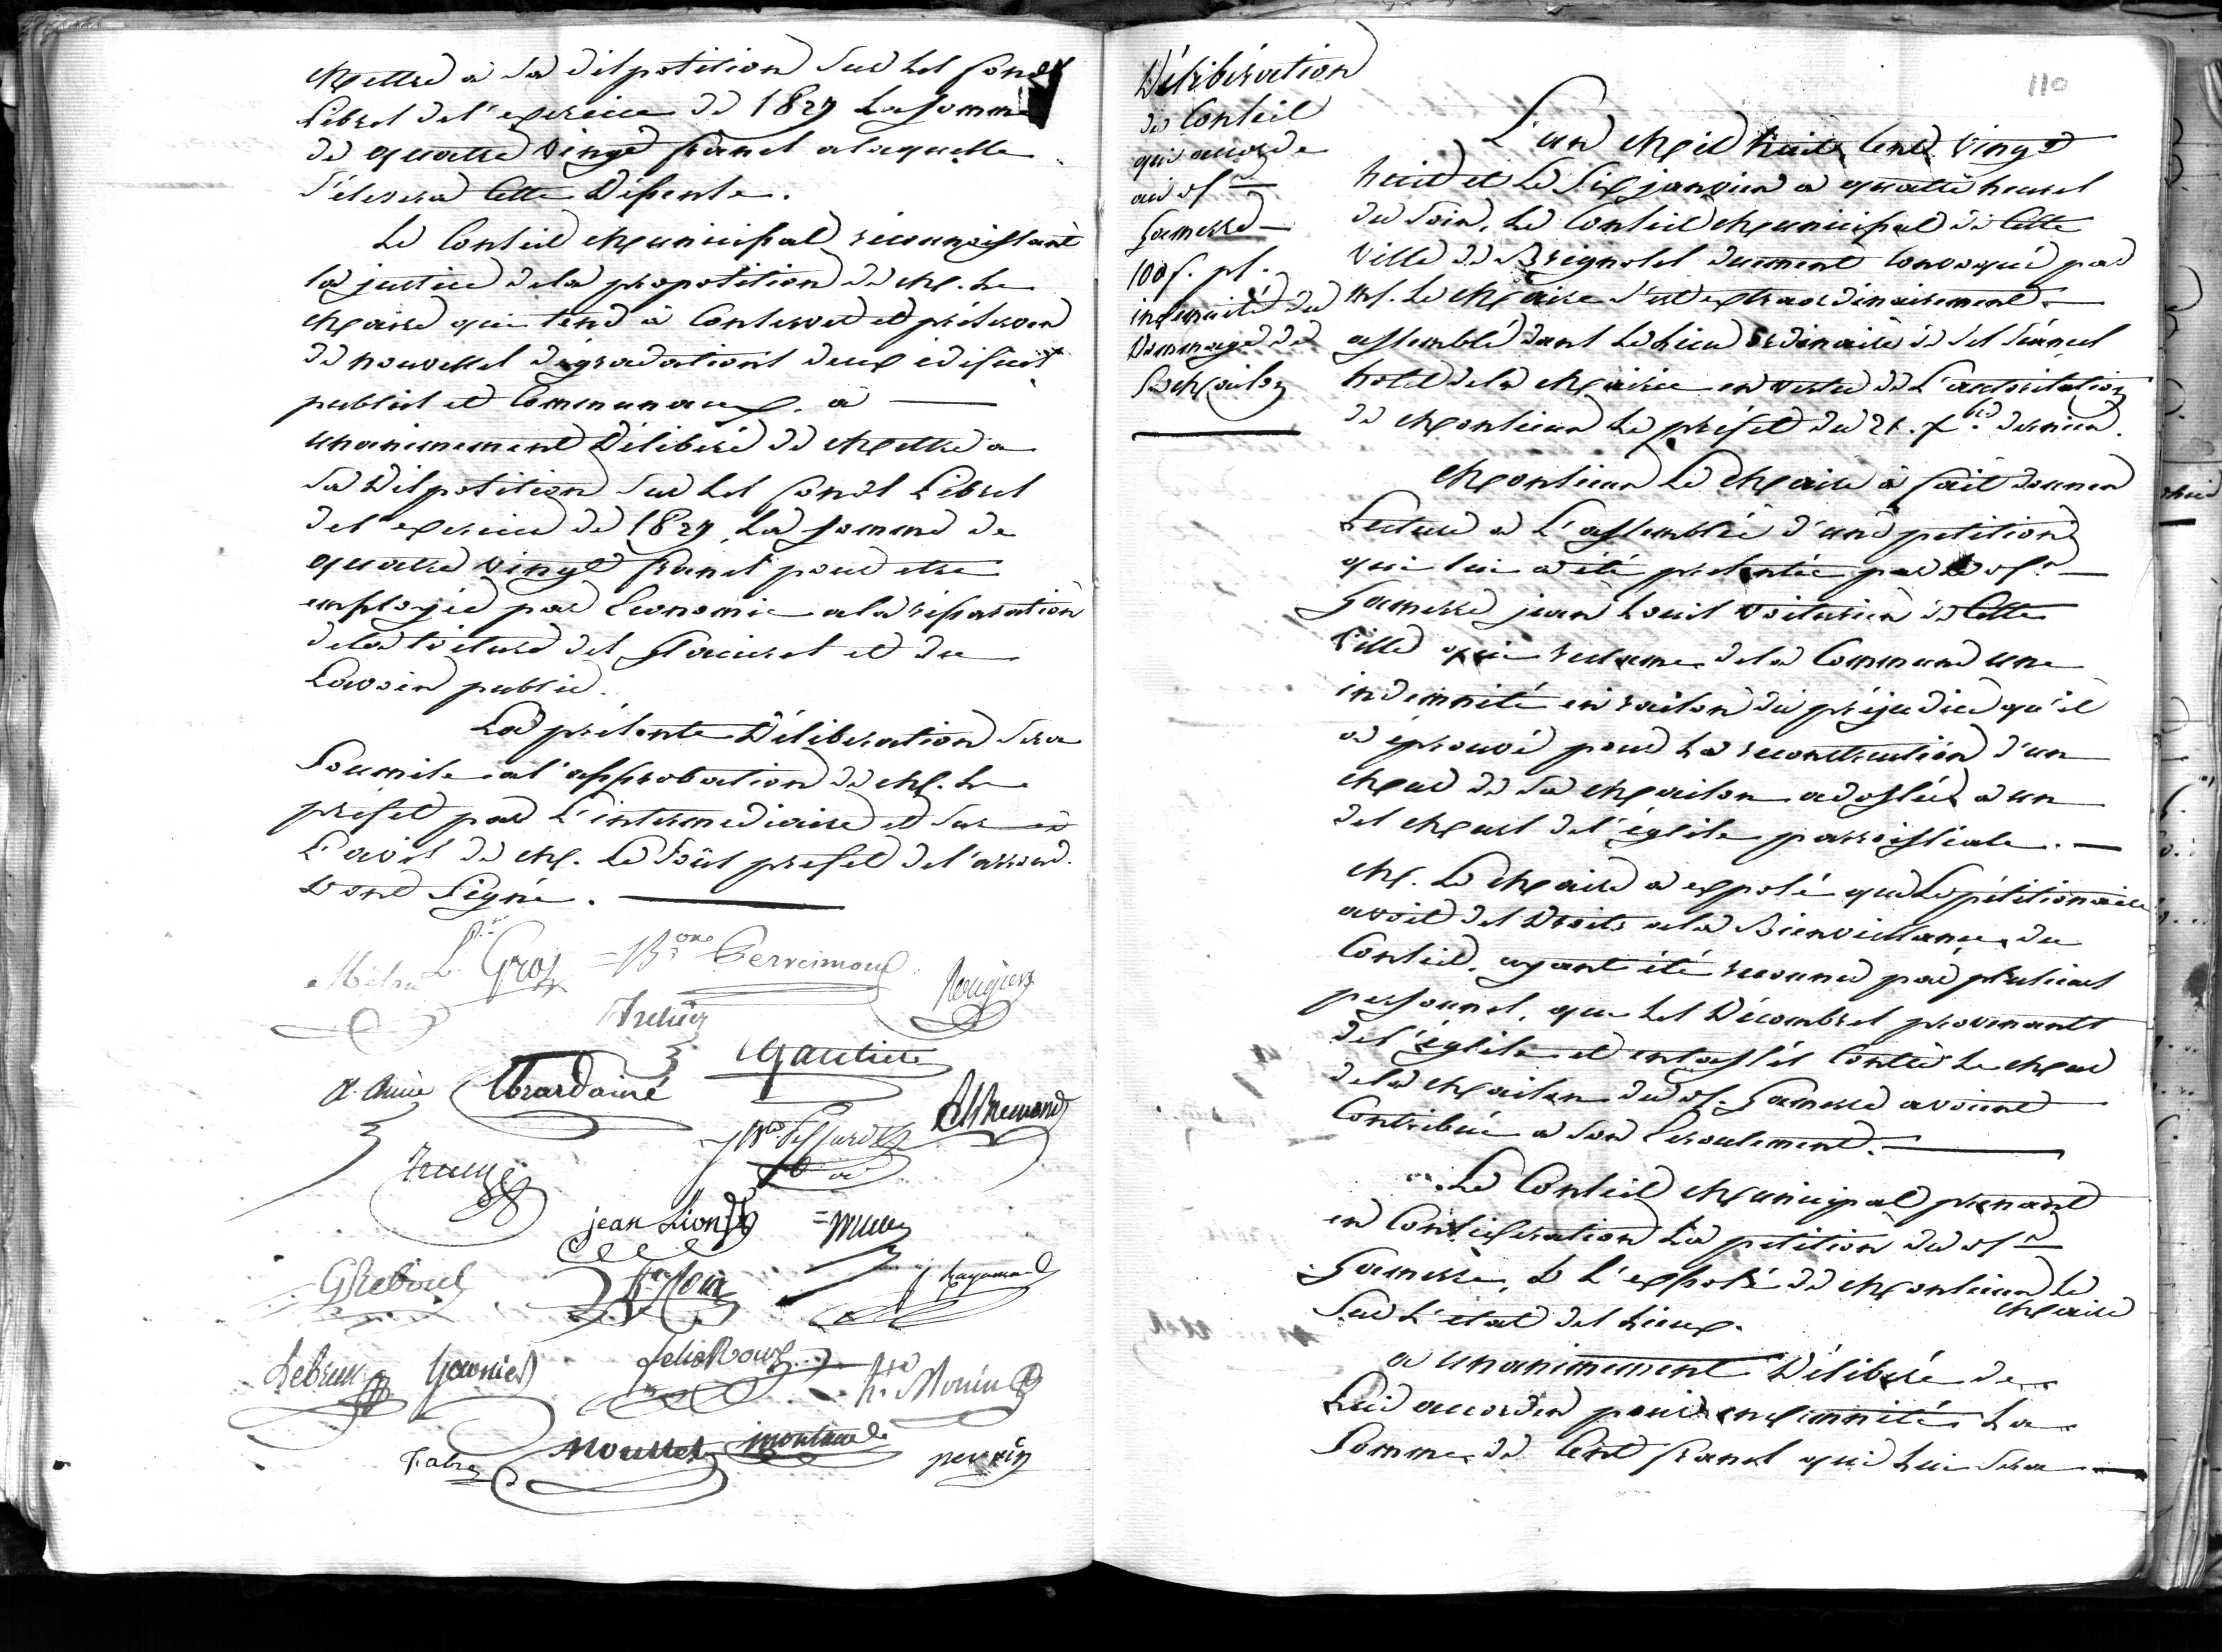 Mettre à sa disposition sur les fonds
Libres de l'exercice de 1827 la somme
de quatre vingt francs a laquelle
s'élevera cette Dépense.
Le Conseil Municipal reconnoissant
la justice de la proposition de M. Le
Maire qui tend à Conserver et préserver
de nouvelles dégradations deux édifices
publics et Communaux. a
unanimement Délibéré de Mettre a
sa Disposition sur les fonds Libres
de l'exercice de 1827, La somme de
quatre vingt francs pour etre
employée par Economie a la réparation
de la toiture des glacieres et du
Lavoir public.
La présente Délibération sera
Soumise a l'approbation de M. Le
préfet par L'intermédiaire et sur
L'avis de M. Le Sous préfet de l'arrond.
L'ont Signé.
L. Gros = Gerveimoux
Gautier
jean Lion
G Reboul
Lebrun Garnier felix Roux
Fabre Mouttet montaud perrin
110
Délibération
du Conseil
qui accorde
au Sr
Gamerre
100 f. pr.
indemnité du
Dommage de
Sa Maison
L'an Mil huit Cent Vingt
huit et Le Six janvier a quatre heures
du Soir, Le Conseil Municipal de Cette
Ville de Brignoles duement Convoqué par
M. Le Maire s'est extraordinairement
assemblé dans Le Lieu ordinaire de ses séances
hotel de la Mairie en vertu de L'autorisation
de Monsieur Le préfet du 21. Xbre dernier.
Monsieur Le Maire a fait donner
Lecture a L'assemblée d'une petition
qui lui a été presentée par le Sr
Gamerre jean Louis Voiturier de Cette
Ville qui reclame de la Commune une
indemnité en raison du préjudice qu'il
a éprouvé pour La reconstruction d'un
Mur de sa Maison adossée a un
des Murs de l'église parroissiale.
M. Le Maire a exposé que Le pétitionnaire
avoit des Droits a la Bienveillance du
Conseil, ayant été reconnu par plusieurs
personnes, que les Décombres provenants
de l'église et entassés Contre Le Mur
de la Maison du Sr. Gamerre avoient
Contribué a son Ecroulement.
Le Conseil Municipal prenant
en Considération La petition du Sr
Gamerre, & L'exposé de Monsieur Le
Maire
Sur L'etat des Lieux.
a unanimement Délibéré de
Lui accorder pour indemnité La
Somme de Cent francs qui Lui sera